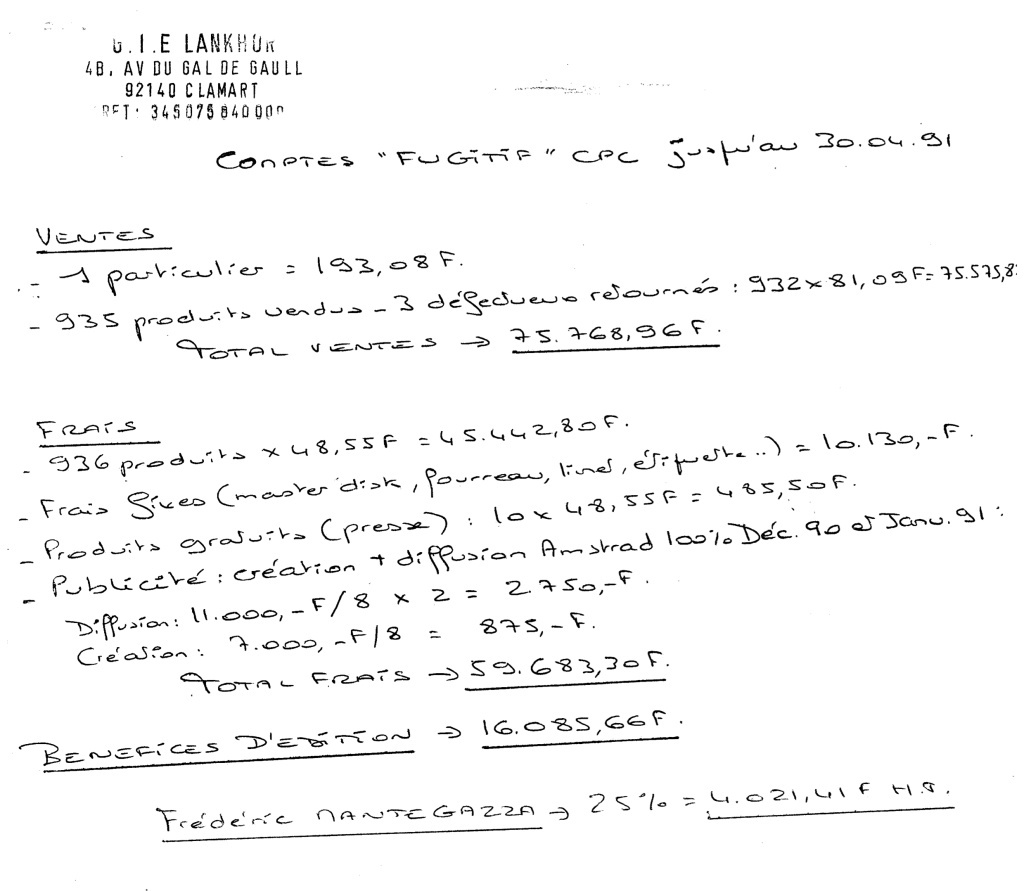 G.I.E LANKHOR
4B, AV DU GAL DE GAULL
92140 CLAMART
RET: 345075840000
COMPTES "FUGITIF" CPC jusqu'au 30.04.91
VENTES
- 1 particulier = 193,08 F.
- 935 produits vendus - 3 défectueux retournés : 932 x 81,09 F = 75.575,8
TOTAL VENTES → 75.768,96 F.
FRAIS
- 936 produits x 48,55 F = 45.442,80 F.
- Frais fixes (master disk, fourreau, livret, étiquette..) = 10.130,- F.
- Produits gratuits (presse) : 10 x 48,55 F = 485,50 F.
- Publicité : création + diffusion Amstrad 100% Déc. 90 et Janv. 91 :
Diffusion : 11.000,- F/8 x 2 = 2.750,- F.
Création : 7.000,- F/8 = 875,- F.
TOTAL FRAIS → 59.683,30 F.
BENEFICES D'EDITION → 16.085,66 F.
Frédéric MANTEGAZZA → 25% = 4.021,41 F H.T.